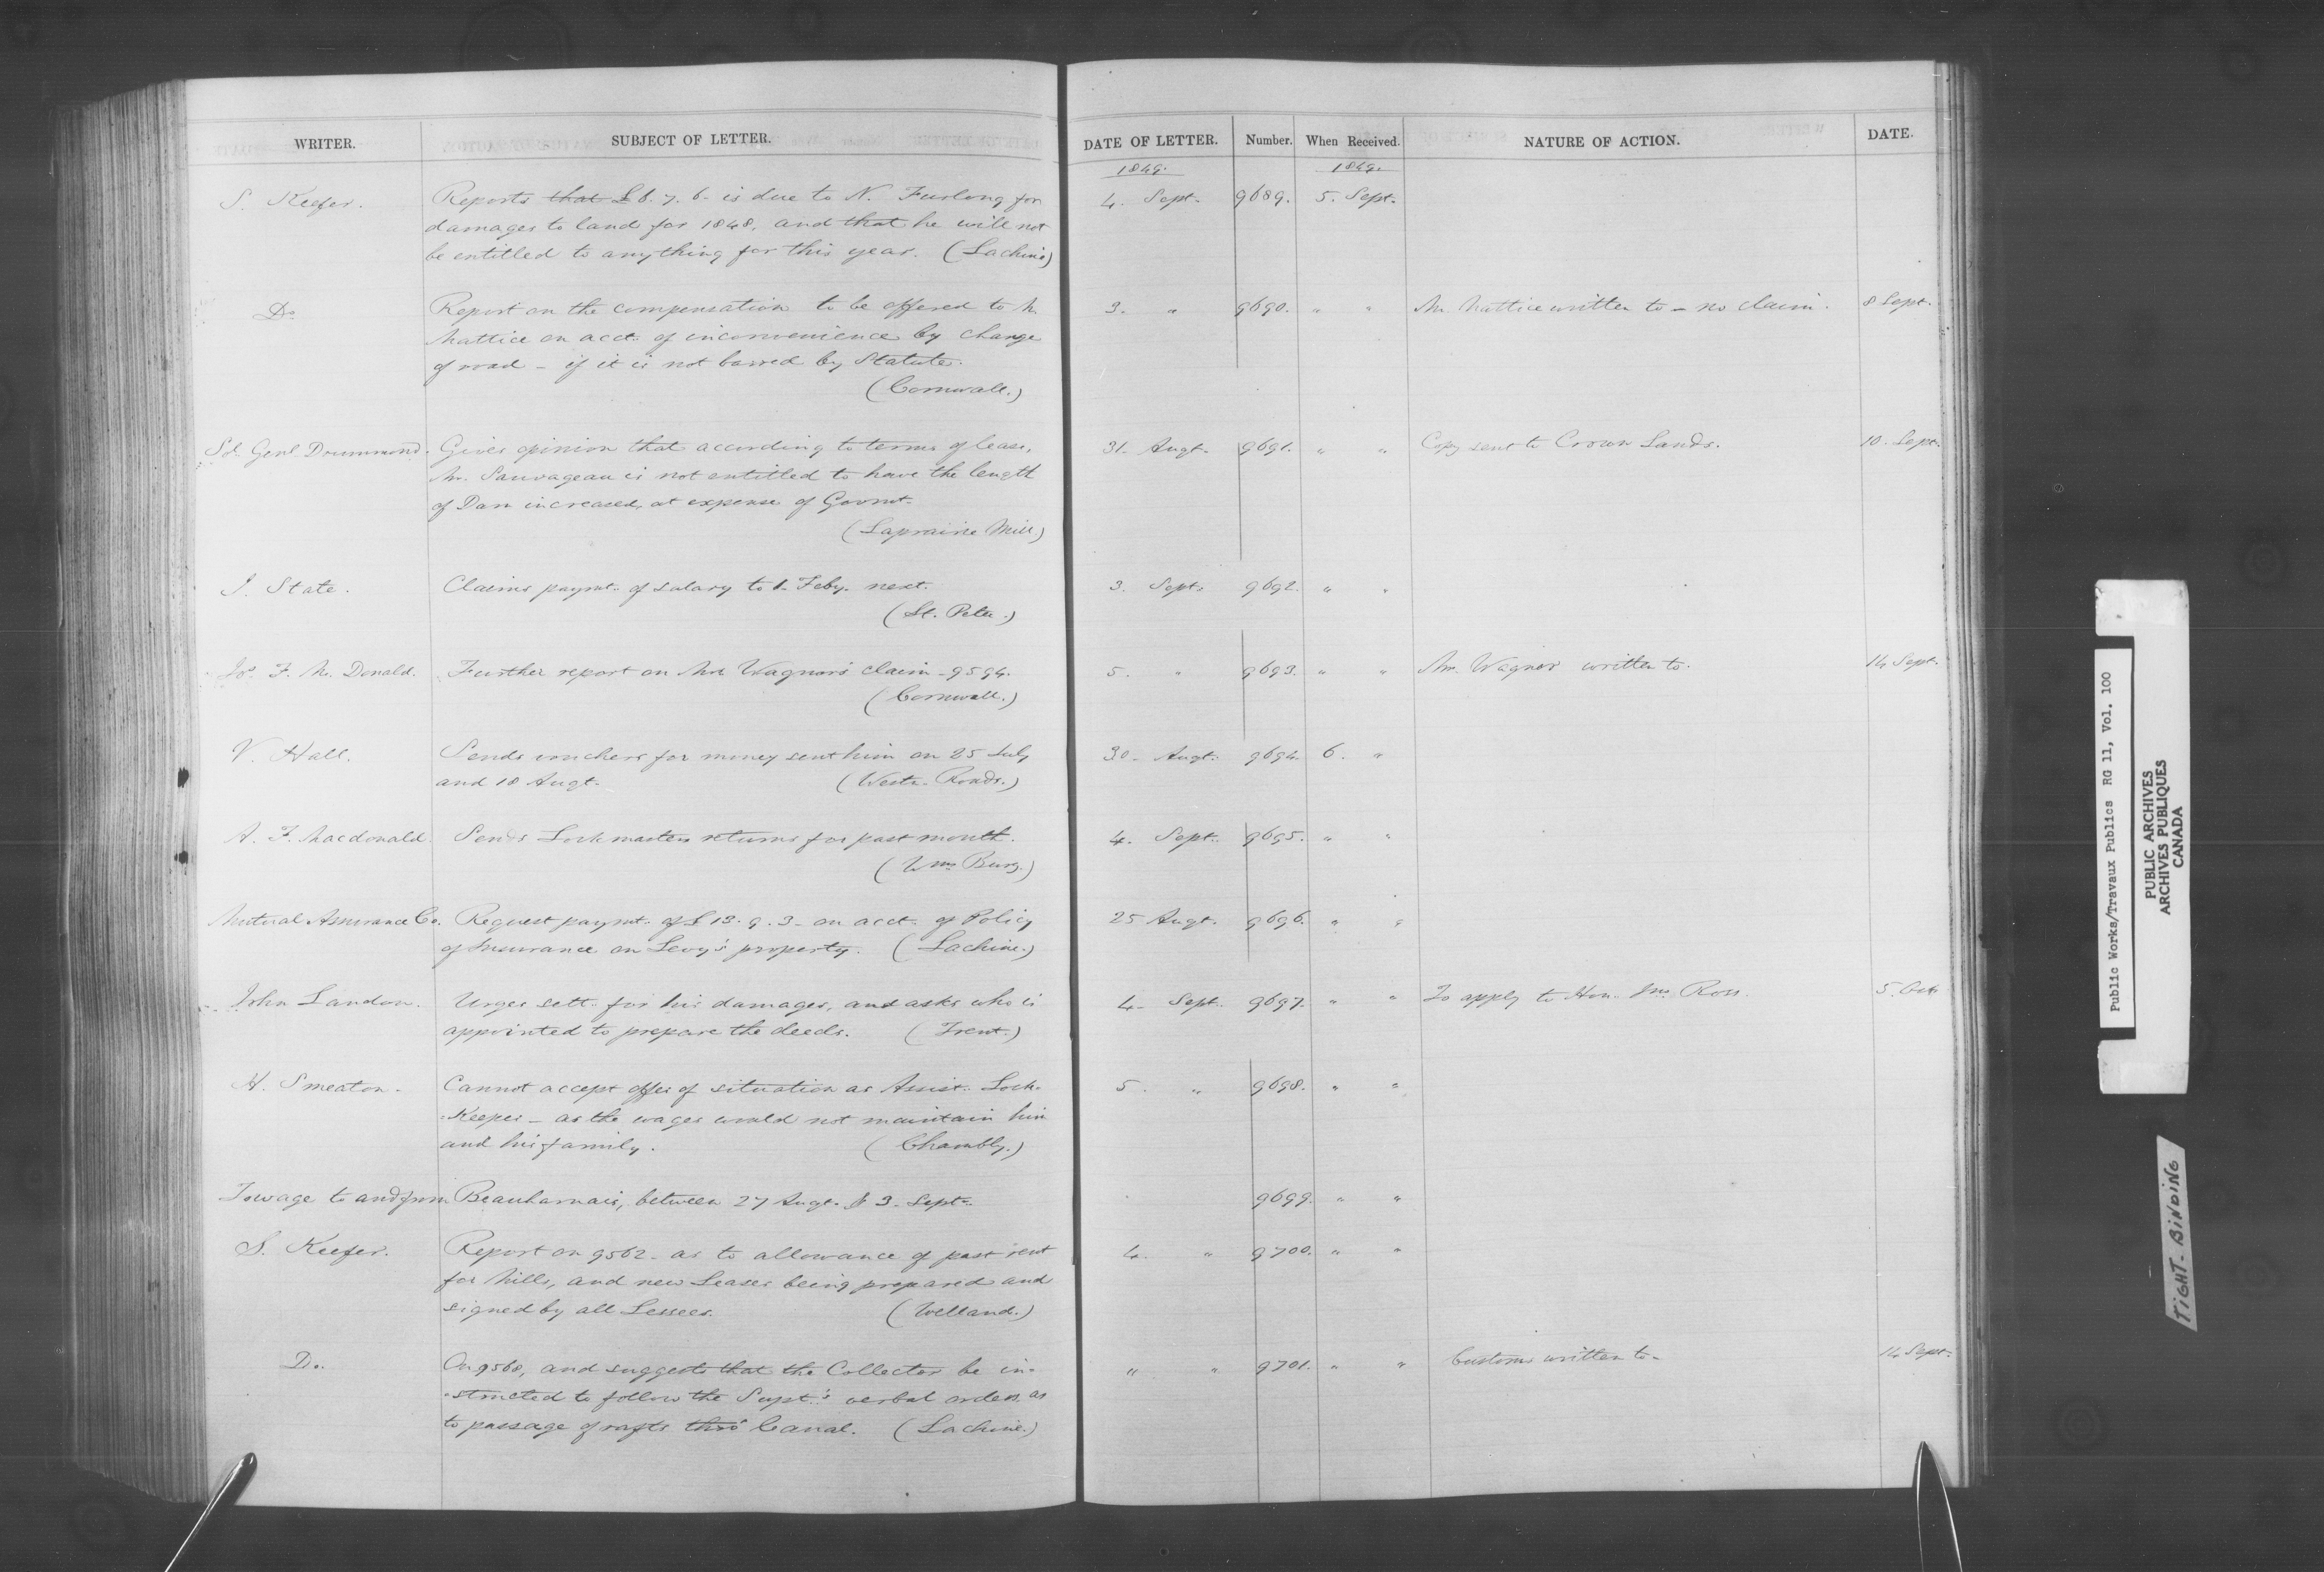 WRITER. SUBJECT OF LETTER. DATE OF LETTER. Number. When Received. NATURE OF ACTION. DATE.
1849. 1849.
S. Keefer. Reports that £8. 7. 6. is due to N. Furlong for 4. Sept. 9689. 5. Sept.
damages to land for 1848, and that he will not
be entitled to anything for this year. (Lachine)
Do Report on the compensation to be offered to Mr. 3. " 9690. " " Mr Mattice written to – no claim. 8 Sept.
Mattice on acct. of inconvenience by change
of road – if it is not barred by Statute.
(Cornwall.)
Sol. Genl. Drummond. Gives opinion that according to terms of lease, 31. Augt. 9691. " " Copy sent to Crown Lands. 10. Sept.
Mr. Sauvageau is not entitled to have the length
of Dam increased, at expense of Govmt.
(Laprairie Mill)
J. State. Claims paymt. of salary to 1. Feby. next. 3. Sept. 9692. " "
(St. Peter.)
F. Mc. Donald. Further report on Mr Wagner's claim – 9594. 5. " 9693. " " Mr. Wagner written to. 14 Sept.
(Cornwall.)
V. Hall. Sends vouchers for money sent him on 25 July 30. Augt. 9694. 6. "
and 18 Augt. (Westn. Roads.)
A. F. Macdonald. Sends Lockmasters returns for past month. 4. Sept. 9695. " "
(Wms Burg.)
Mutual Assurance Co. Request paymt. of £13. 9. 3 – on acct. of Policy 25 Augt. 9696. " "
of Insurance on Levy's property. (Lachine.)
John Landon. Urges sett. for his damages, and asks who is 4. Sept. 9697. " " To apply to Hon. Jno Ross. 5. Oct.
appointed to prepare the deeds. (Trent.)
H. Smeaton. Cannot accept offer of situation as Assist. Lock- 5. " 9698. " "
-Keeper – as the wages would not maintain him
and his family. (Chambly.)
Towage to and from Beauharnais, between 27 Augt. & 3. Sept. 9699. " "
S. Keefer. Report on 9562 – as to allowance of past rent 4. " 9700. " "
for Mills, and new Leases being prepared and
signed by all Lessees. (Welland.)
Do. On 9568, and suggests that the Collector be in- " " 9701. " " Customs written to – 14 Sept.
-structed to follow the Supt.'s verbal orders as
to passage of rafts thro' Canal. (Lachine.)
Public Works/Travaux Publics RG 11, Vol. 100
PUBLIC ARCHIVES
ARCHIVES PUBLIQUES
CANADA
TIGHT BINDING